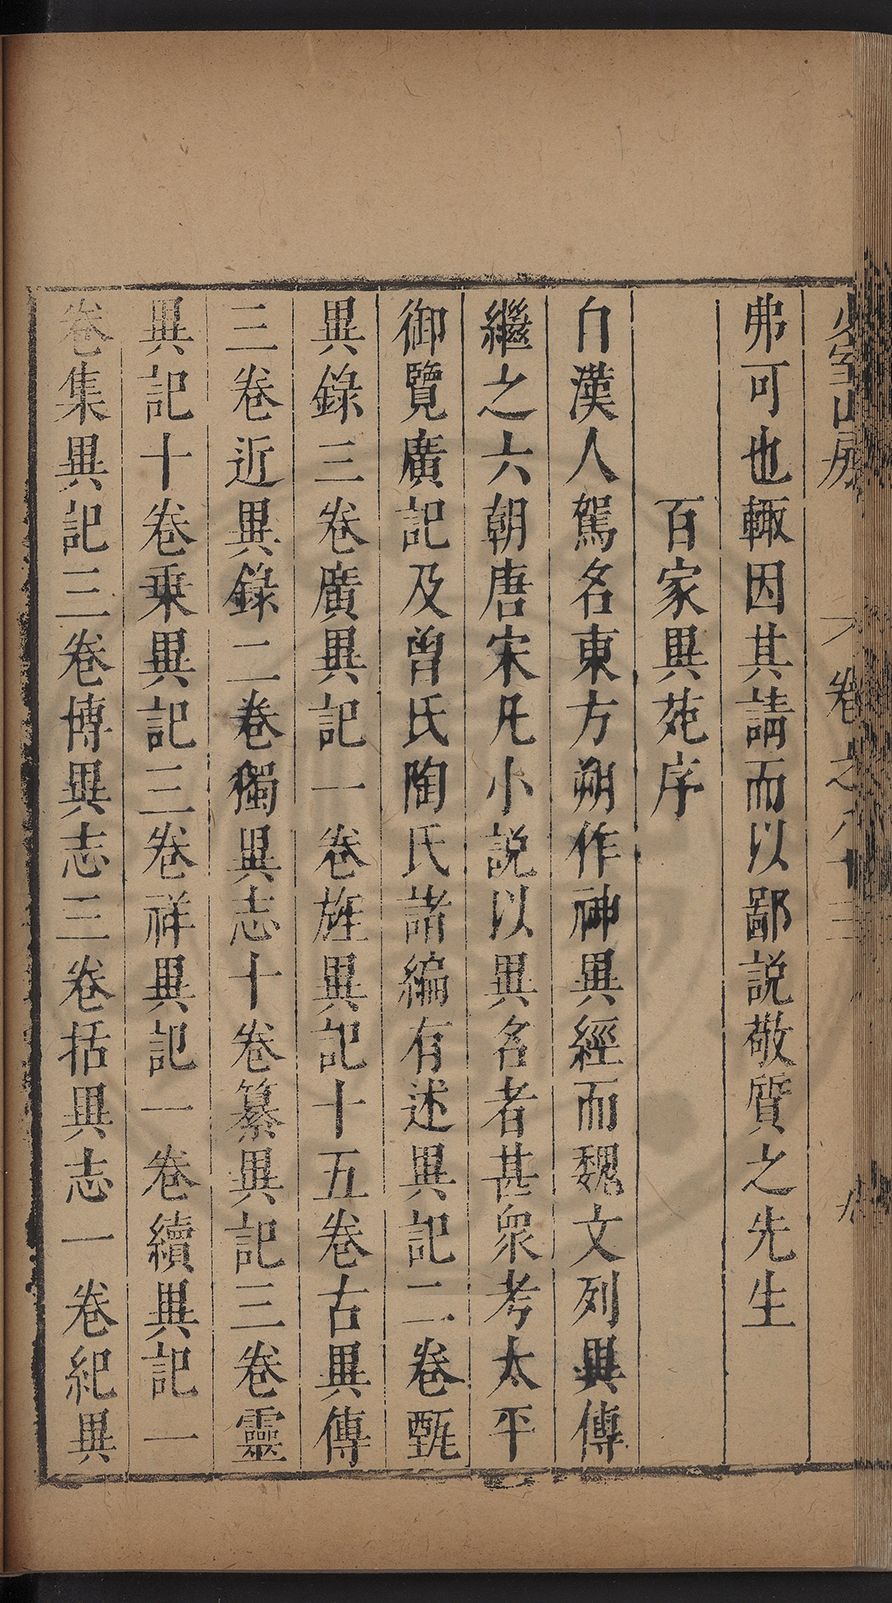 少室山房 卷之八十三 九
弗可也輙因其請而以鄙說敬質之先生
百家異苑序
自漢人駕名東方朔作神異經而魏文列異傳
繼之六朝唐宋凡小說以異名者甚衆考太平
御覽廣記及曾氏陶氏諸編有述異記二卷甄
異錄三卷廣異記一卷旌異記十五卷古異傳
三卷近異錄二卷獨異志十卷纂異記三卷靈
異記十卷乗異記三卷祥異記一卷續異記一
卷集異記三卷博異志三卷括異志一卷紀異